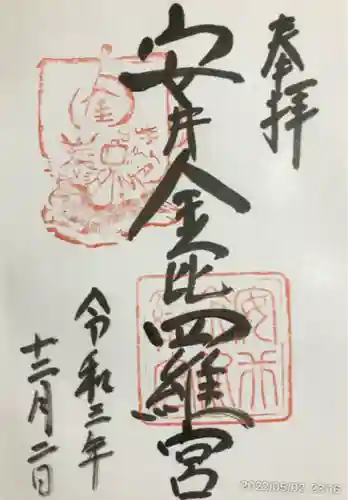 奉拝
安井金比羅宮
令和三年
十二月二日
2022/05/02 22:16